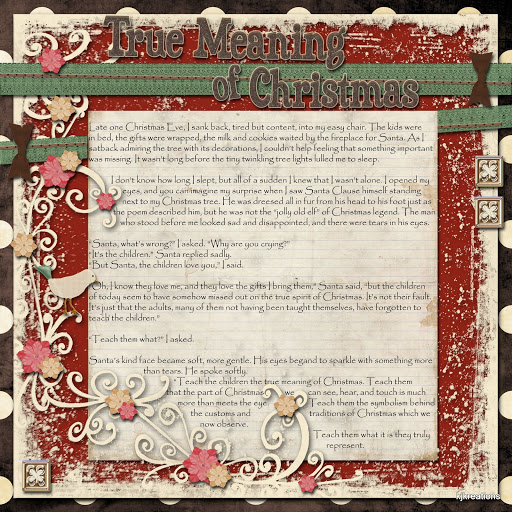 True Meaning
of Christmas
Late one Christmas Eve, I sank back, tired but content, into my easy chair. The kids were
in bed, the gifts were wrapped, the milk and cookies waited by the fireplace for Santa. As I
satback admiring the tree with its decorations, I couldn't help feeling that something important
was missing. It wasn't long before the tiny twinkling tree lights lulled me to sleep.
I don't know how long I slept, but all of a sudden I knew that I wasn't alone. I opened my
eyes, and you can imagine my surprise when I saw Santa Clause himself standing
next to my Christmas tree. He was dreesed all in fur from his head to his foot just as
the poem described him, but he was not the "jolly old elf" of Christmas legend. The man
who stood before me looked sad and disappointed, and there were tears in his eyes.
"Santa, what's wrong?" I asked. "Why are you crying?"
"It's the children," Santa replied sadly.
"But Santa, the children love you," I said.
"Oh, I know they love me, and they love the gifts I bring them," Santa said, "but the children
of today seem to have somehow missed out on the true spirit of Christmas. It's not their fault.
It's just that the adults, many of them not having been taught themselves, have forgotten to
teach the children."
"Teach them what?" I asked.
Santa's kind face became soft, more gentle. His eyes begand to sparkle with something more
than tears. He spoke softly.
"Teach the children the true meaning of Christmas. Teach them
that the part of Christmas we can see, hear, and touch is much
more than meets the eye. Teach them the symbolism behind
the customs and traditions of Christmas which we
now observe.
Teach them what it is they truly
represent.
kjkreations